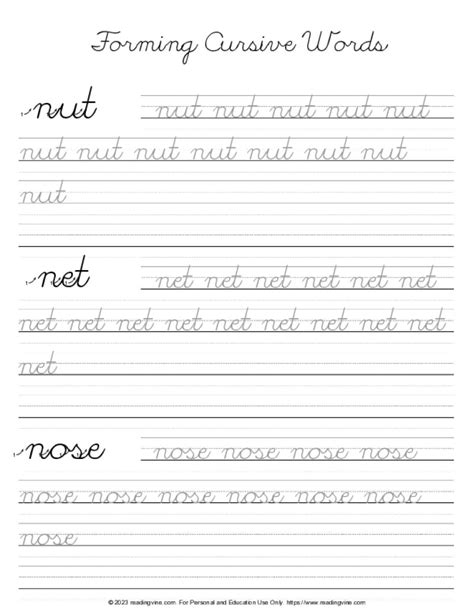 Forming Cursive Words
nut nut nut nut nut nut
nut nut nut nut nut nut nut
nut
net net net net net net net
net net net net net net net net net
net
nose nose nose nose nose
nose nose nose nose nose nose nose
nose
© 2023 readingvine.com For Personal and Education Use Only. https://www.readingvine.com